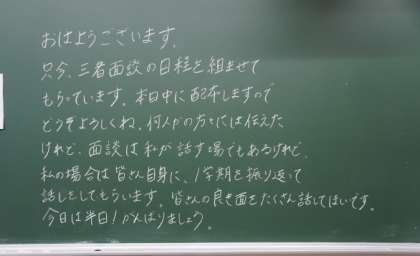 おはようございます。
只今、三者面談の日程を組ませて
もらっています。本日中に配布しますので
どうぞよろしくね。何人かの方々には伝えた
けれど、面談は私が話す場でもあるけれど、
私の場合は皆さん自身に、1学期を振り返って
話しをしてもらいます。皆さんの良き面をたくさん話してほしいです。
今日は半日!がんばりましょう。